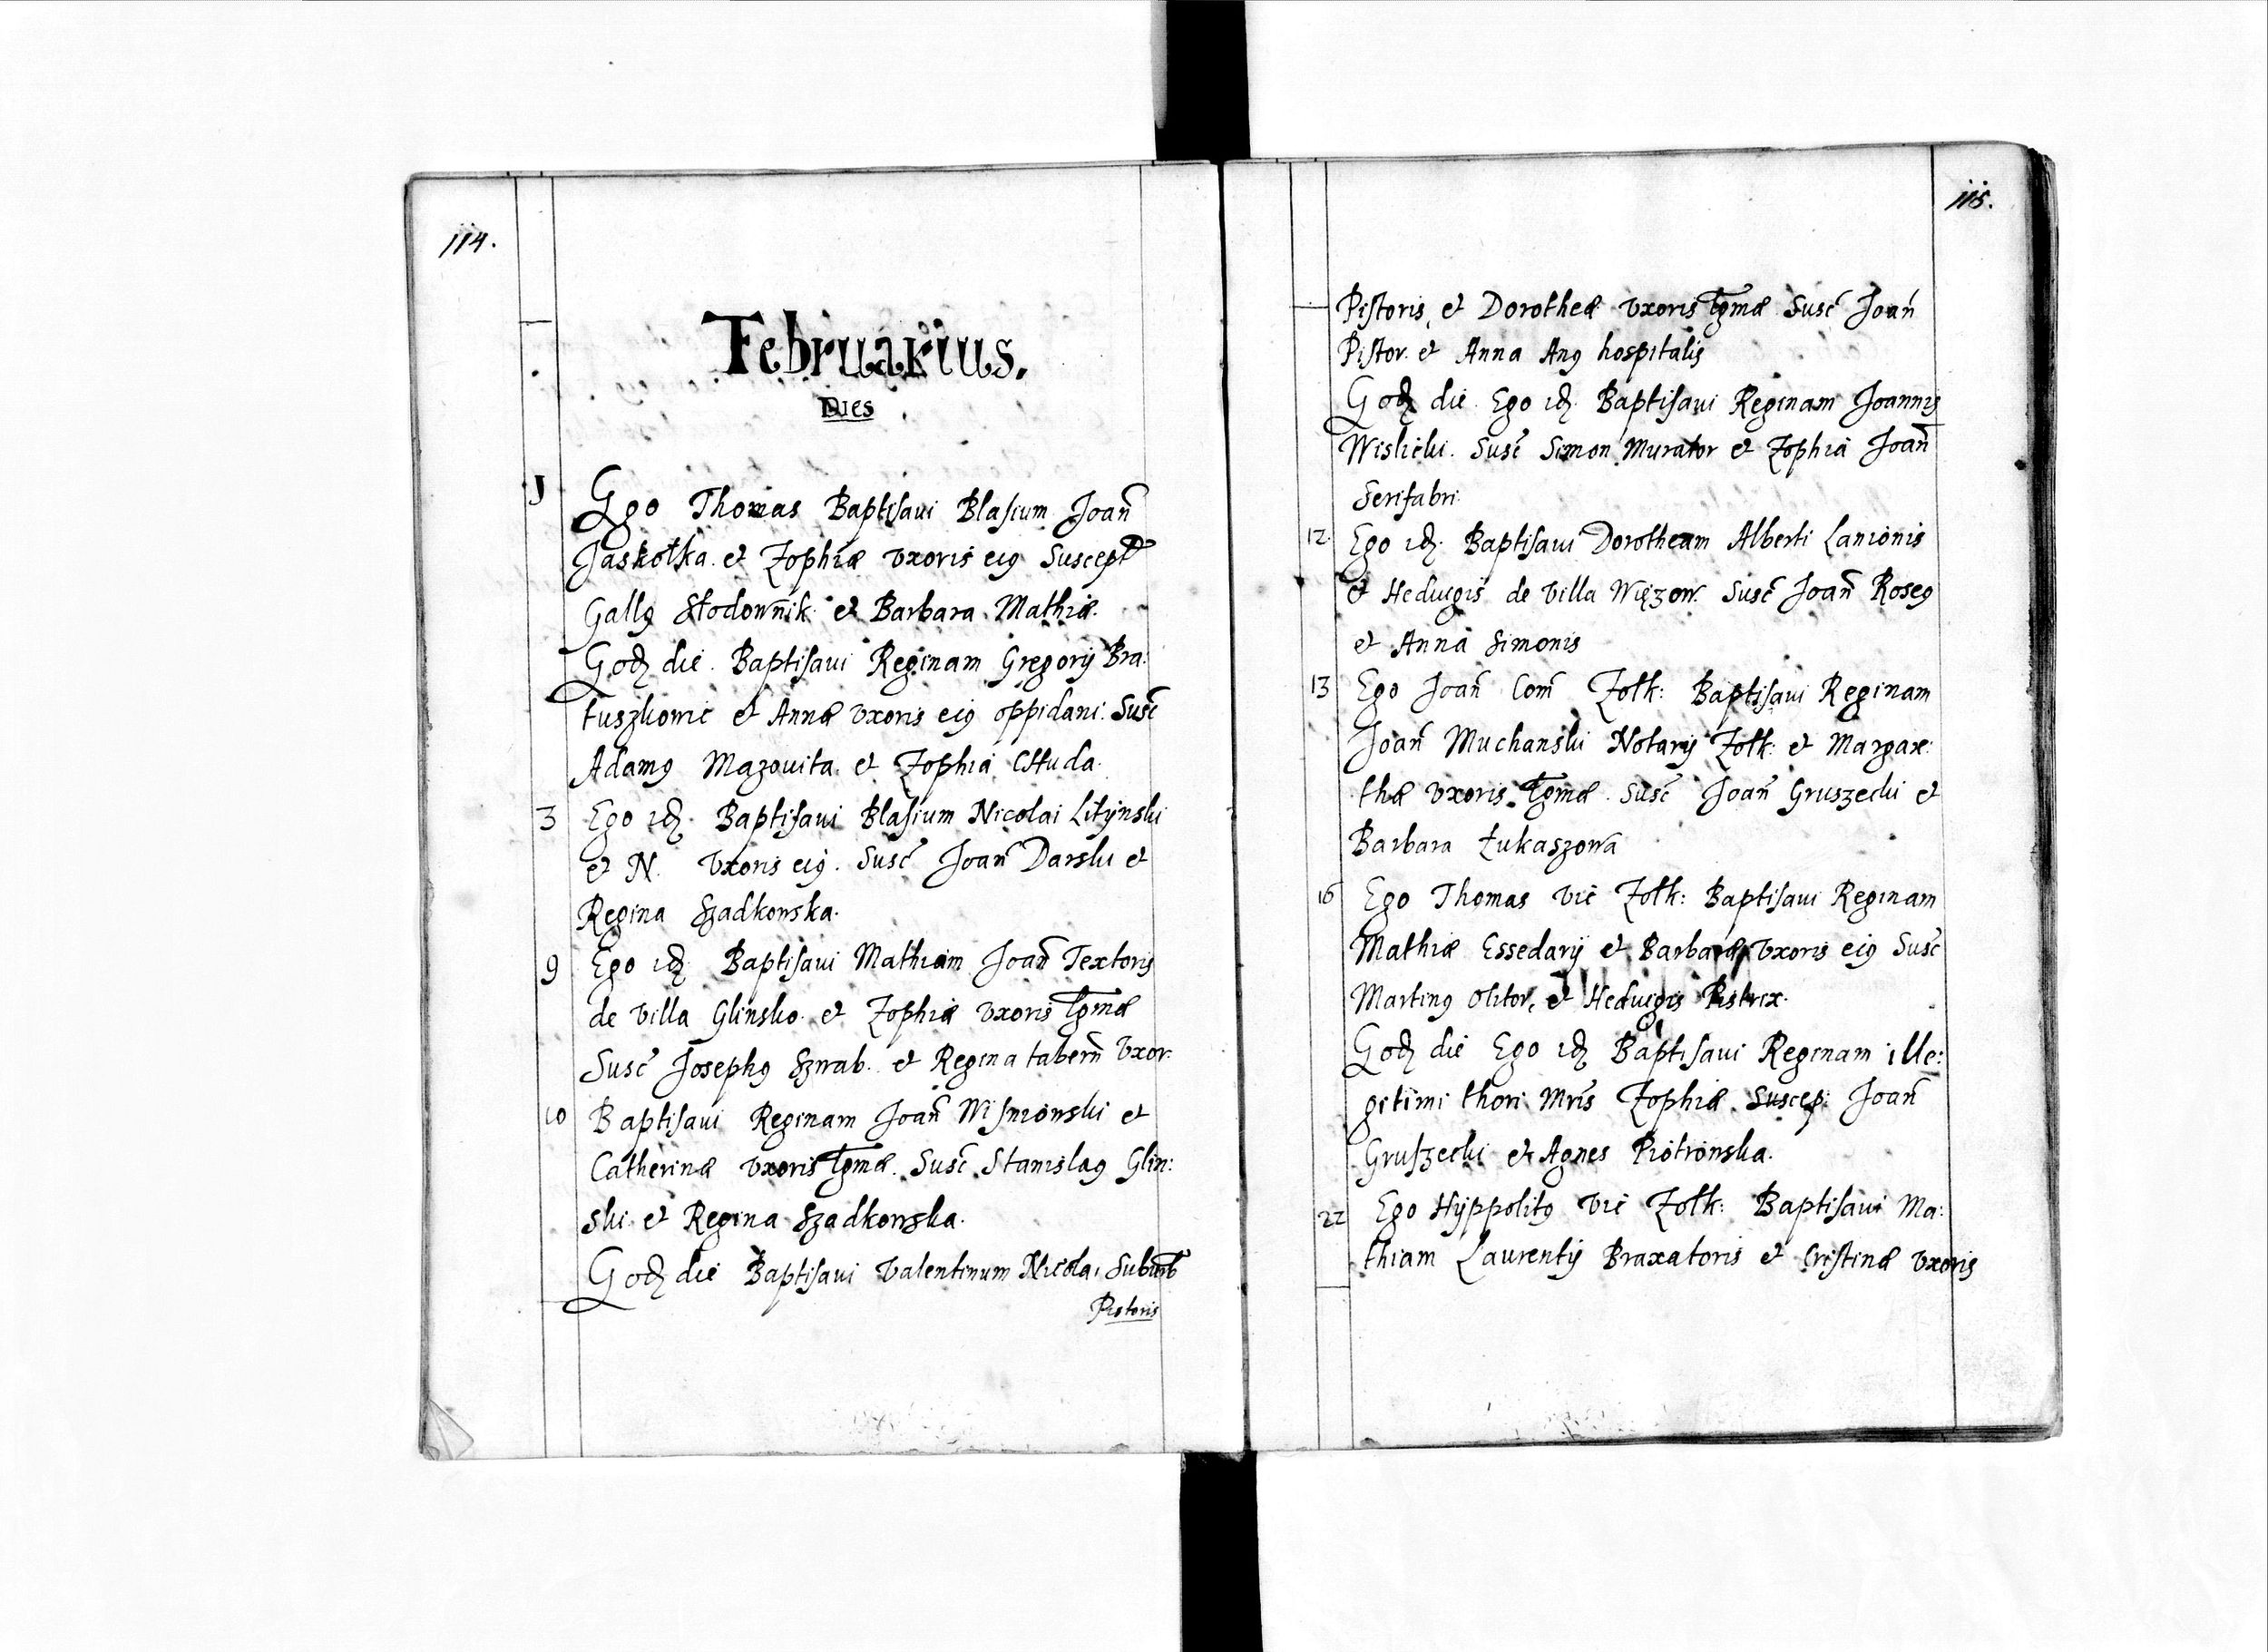 114.
Februarius.
Dies
1 Ego Thomas Baptisaui Blasium Joañ
Jaskołka et Zophiæ vxoris eiꝰ Suscept
Gallꝰ Słodownik et Barbara Mathiæ.
Eodẽ die. Baptisaui Reginam Gregorij Bra:
tuszkowic et Annæ vxoris eiꝰ oppidani. Susc̃
Adamꝰ Mazouita et Zophia Chuda.
3 Ego idẽ Baptisaui Blasium Nicolai Litÿnski
et N. Vxoris eiꝰ. Susc̃ Joañ Darski et
Regina Szadkowska.
9 Ego idẽ Baptisaui Mathiam Joañ Textoris
de villa Glinsko et Zophiæ vxoris lgmæ
Susc̃ Josephꝰ Szwab. et Regina tabern̄ Vxor.
10 Baptisaui Reginam Joañ Wisniowski et
Catherinæ vxoris lgmæ. Susc̃ Stanislaꝰ Glin:
ski et Regina Szadkowska.
Eodẽ die Baptisaui Valentinum Nicolai Suburb
Pistoris
115.
Pistoris, et Dorotheæ vxoris lgmæ Susc̃ Joañ
Pistor. et Anna Anꝰ hospitalis
Eodẽ die Ego idẽ Baptisaui Reginam Joannis
Wislicki. Susc̃ Simon Murator et Zophia Joañ
Serifabri.
12. Ego idẽ Baptisaui Dorotheam Alberti Lanionis
et Heduigis de villa Więzow. Susc̃ Joañ Roseꝰ
et Anna Simonis
13 Ego Joañ Com̃ Zołk: Baptisaui Reginam
Joañ Muchanski Notarij Zołk: et Margare:
thæ vxoris lgmæ. Susc̃ Joañ Gruszecki et
Barbara Łukaszowa
16 Ego Thomas vic̃ Zołk: Baptisaui Reginam
Mathiæ Essedarij et Barbaræ Vxoris eiꝰ Susc̃
Martinꝰ olitor, et Heduigis Pistrix.
Eodẽ die Ego idẽ Baptisaui Reginam ille:
gitimi thori Mr̃is Zophiæ. Suscep: Joañ
Gruszecki et Agnes Piotrowska.
22 Ego Hÿppolitꝰ vic̃ Zołk: Baptisaui Ma:
thiam Laurentij Braxatoris et Cristinæ vxoris